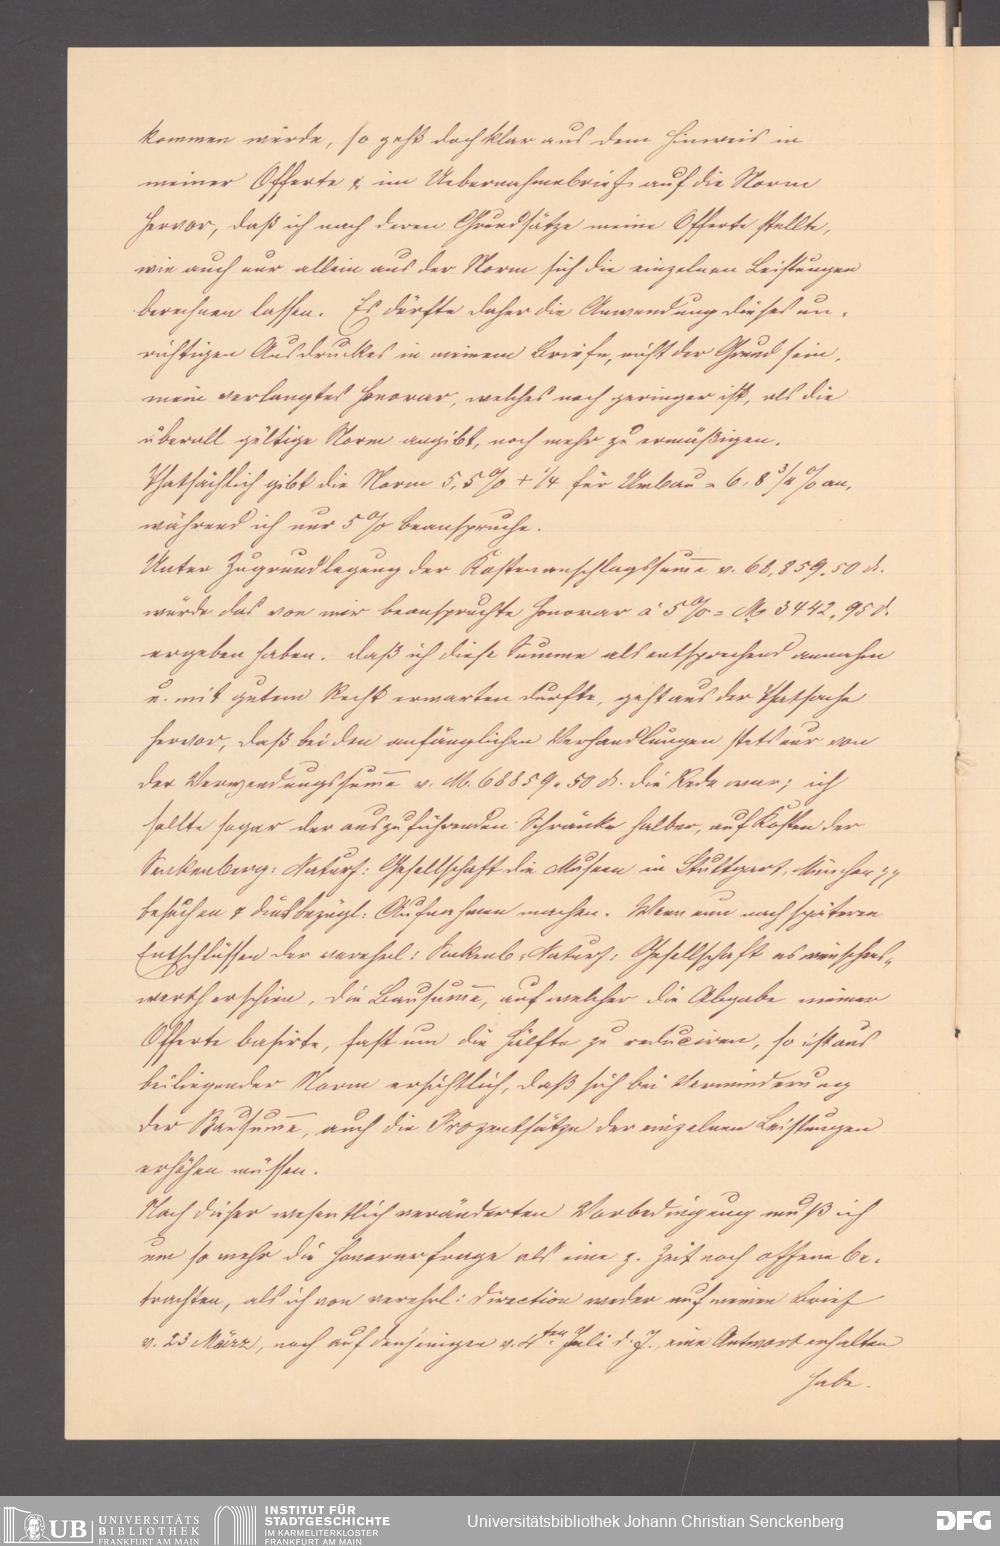 kommen würde, so geht doch klar aus dem Hinweis in
meiner Offerte & im Uebernahmsbrief auf die Norm
hervor, daß ich nach deren Grundsätze meine Offerte stellte,
wie auch nur allein aus der Norm sich die einzelnen Leistungen
berechnen lassen. Es dürfte daher die Anwendung dieses un-
richtigen Ausdruckes in meinem Briefe, nicht der Grund sein,
mein verlangtes Honorar, welches noch geringer ist, als die
überall gültige Norm angibt, noch mehr zu ermäßigen.
Thatsächlich gibt die Norm 5,5 % + 1/4 für Umbau = 6,8 3/4 % an,
während ich nur 5 % beanspruche.
Unter Zugrundlegung der Kostenanschlagssum̅e v. 68,859.50 d.
würde das von mir beanspruchte Honorar à 5 % = M 3442,95 d.
ergeben haben. Daß ich diese Summe als entsprechend annahm
u. mit gutem Recht erwarten durfte, geht aus der Thatsache
hervor, daß bei den anfänglichen Verhandlungen stets nur von
der Verwendungssum̅e v. M. 68859.50 d. die Rede war; ich
sollte sogar der auszuführenden Schränke halber, auf Kosten der
Senkenberg: Naturf: Gesellschaft die Museen in Stuttgart, München
besuchen & diesbezügl: Aufnahmen machen. Wenn nun nach späteren
Entschlüssen der verehrl: Senkenb: Naturf: Gesellschaft es wünschens-
werth erschien, die Bausum̅e, auf welcher die Abgabe meiner
Offerte basirte, fast um die Hälfte zu reduciren, so ist aus
beiliegender Norm ersichtlich, daß sich bei Verminderung
der Bausum̅e, auch die Prozentsätze der einzelnen Leistungen
erhöhen müssen.
Nach dieser wesentlich veränderten Vorbedingung muß ich
um so mehr die Honorarfrage als eine z. Zeit noch offene be-
trachten, als ich von verehrl: Direction weder auf meinen Brief
v. 23 März, noch auf denjenigen v. 4ten Juli d. J., eine Antwort erhalten
habe.
UB UNIVERSITÄTS
BIBLIOTHEK
FRANKFURT AM MAIN
INSTITUT FÜR
STADTGESCHICHTE
IM KARMELITERKLOSTER
FRANKFURT AM MAIN
Universitätsbibliothek Johann Christian Senckenberg
DFG